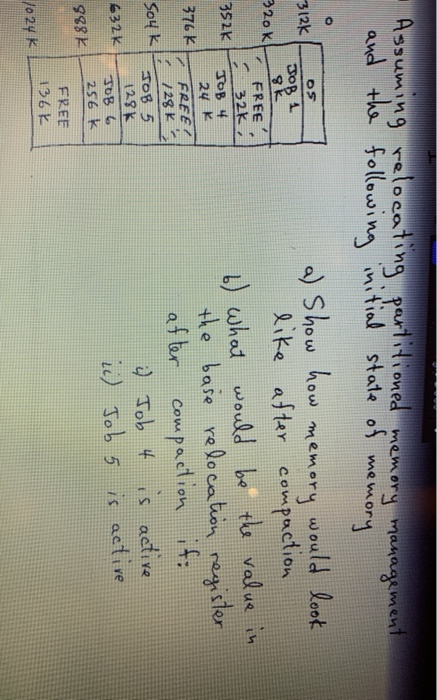 Assuming relocating partitioned memory management
and the following initial state of memory
a) Show how memory would look
like after compaction
b) What would be the value in
the base relocation register
after compaction if:
i) Job 4 is active
ii) Job 5 is active
0
OS
312K
JOB 1
8K
320K
FREE
32K
352K
JOB 4
24 K
376K
FREE
128K
504K
JOB 5
128K
632K
JOB 6
256 K
888K
FREE
136K
1024K